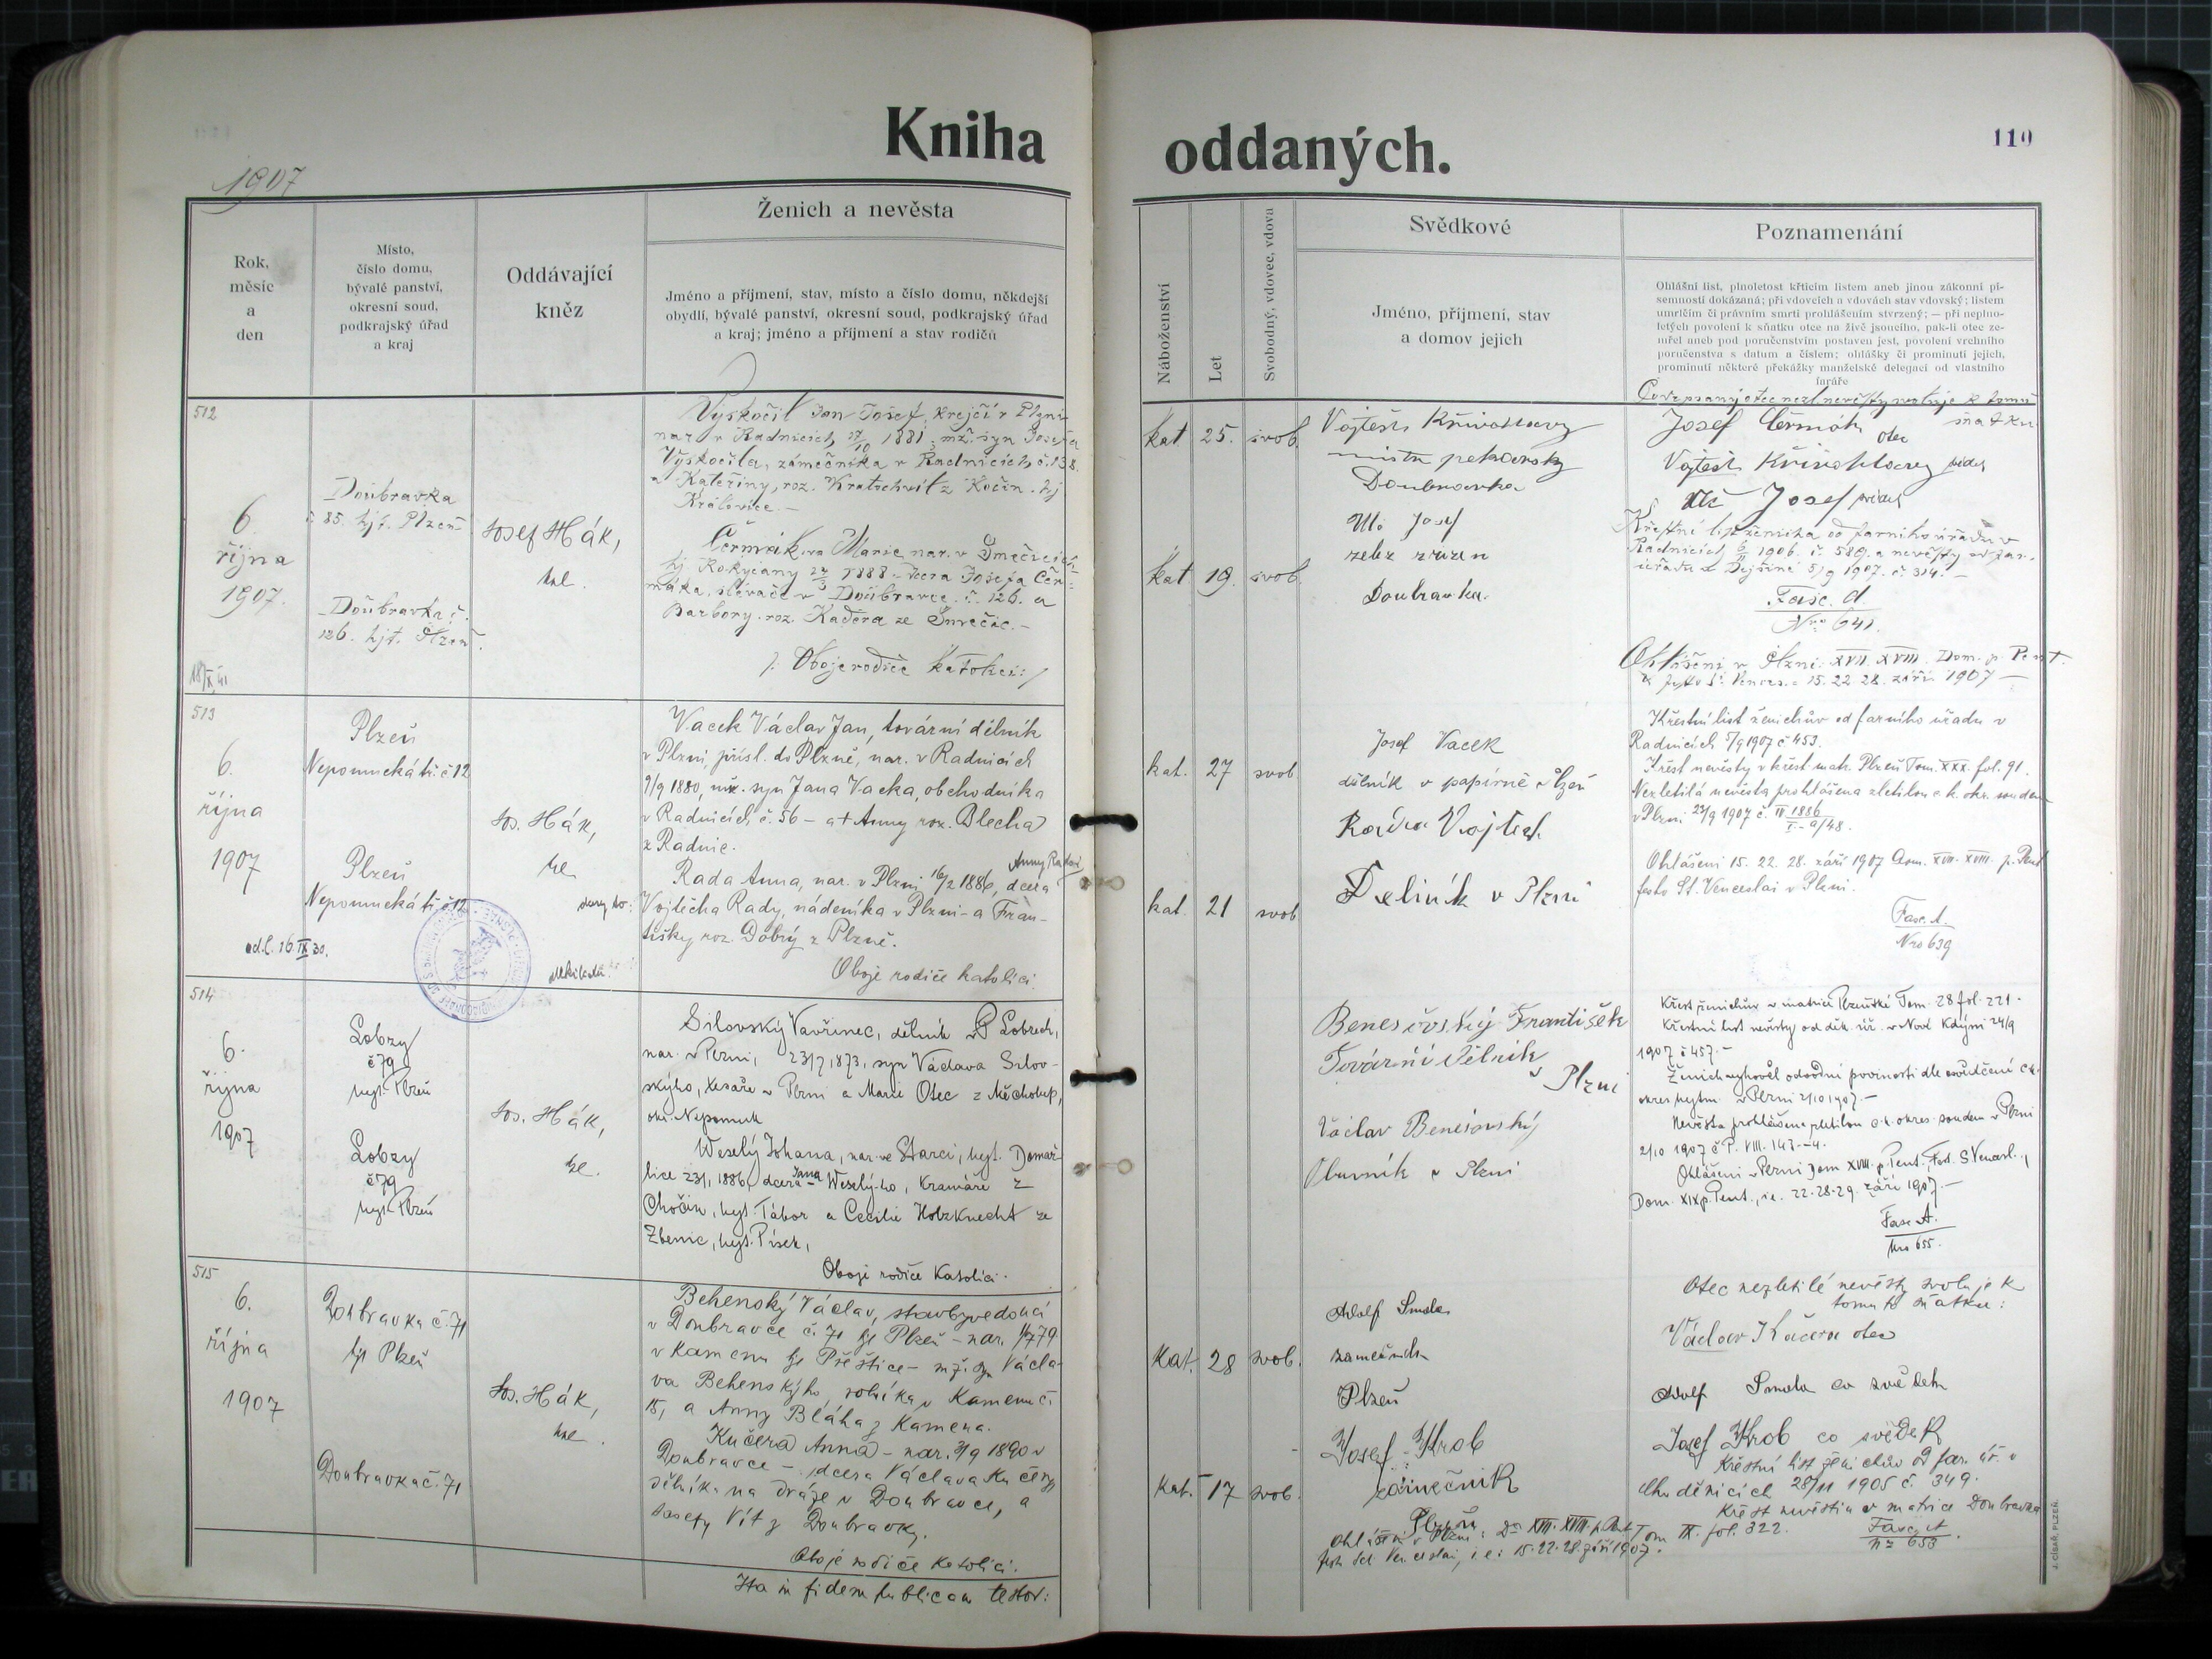 Kniha
oddaných.
110
1907
Rok,
měsíc
a
den
Místo,
číslo domu,
bývalé panství,
okresní soud,
podkrajský úřad
a kraj
Oddávající
kněz
Ženich a nevěsta
Jméno a příjmení, stav, místo a číslo domu, někdejší
obydlí, bývalé panství, okresní soud, podkrajský úřad
a kraj; jméno a příjmení a stav rodičů
Náboženství
Let
Svobodný, vdovec, vdova
Svědkové
Jméno, příjmení, stav
a domov jejich
Poznamenání
Ohlášní list, plnoletost křticím listem aneb jinou zákonní pí-
semností dokázaná; při vdovcích a vdovách stav vdovský; listem
umrlčím či právním smrti prohlášením stvrzený; — při neplno-
letých povolení k sňatku otce na živě jsoucího, pak-li otec ze-
mřel aneb pod poručenstvím postaven jest, povolení vrchního
poručenstva s datum a číslem; ohlášky či prominutí jejich,
prominutí některé překážky manželské delegací od vlastního
faráře
512
6.
října
1907.
Doubravka
č 85. hjt. Plzeň
Doubravka č.
126. hjt. Plzeň.
Josef Hák,
kpl.
Vyskočil Jan Josef, krejčí v Plzni
nar. v Radnicích 27/10 1881. mž. syn Josefa
Vyskočila, zámečníka v Radnicích, č. 138.
a Kateřiny, roz. Kratschvil z Kočin. hj
Královice. –
Čermáková Marie, nar. v Smečicích
hj Rokycany 27/3 1888 – dcera Josefa Čer-
máka, slévače v Doubravce. č. 126. a
Barbory. roz. Kaděra ze Smečic. –
/: Oboje rodiče katoličtí :/
kat 25. svob.
kat 19. svob.
Vojtěch Křivohlavy
mistr pekařsky
Doubravka
Josef
Doubravka.
Josef Čermák otec
sňatku
Vojtěch Křivohlavy svědek
Josef svědek
Křestní list ženicha od farního úřadu v
Radnicích 1906. č. 589. a nevěsty od far.
úřadu z Dýšiné 5/9 1907. č. 314. –
Fasc. A.
Nro 641.
Ohlášeni v Plzni: XVII. XVIII. Dom. p. Pent.
15. 22 28. září 1907 –
513
6.
října
1907
Plzeň
Nepomucká tř. č 12
Plzeň
Nepomucká tř. č 12
Jos. Hák,
kpl.
Vacek Václav Jan, tovární dělník
v Plzni, přísl. do Plzně, nar. v Radnicích
9/9 1880, mž. syn Jana Vacka, obchodníka
v Radnicích č. 56 – a † Anny roz. Blecha
z Radnic.
Rada Anna, nar. v Plzni 16/2 1886, dcera
Vojtěcha Rady, nádeníka v Plzni – a Fran-
tišky roz. Dobrý z Plzně.
Oboje rodiče katolíci.
kat. 27 svob
kat. 21 svob
Josef Vacek
dělník v papírně Plzeň
Rada Vojtěch
Delník v Plzni
Křestní list ženichův od farního úřadu v
Radnicích 5/9 1907 č 453.
Křest nevěsty v křest. matr. Plzeň Tom. XXX. fol. 91.
Nezletilá nevěsta prohlášena zletilou c. k. okr. soudem
v Plzni 23/9 1907 č.
Ohlášeni 15. 22. 28. září 1907 Dom. XVII. XVIII. p. Pent
festo St. Venceslai v Plzni.
Fasc. A.
Nro 639
514
6.
října
1907
Lobzy
č 79
hejt. Plzeň
Lobzy
č 79
hejt. Plzeň
Jos. Hák,
kpl.
Silovský Vavřinec, dělník v Lobzech,
nar. v Plzni, 23/7 1873, syn Václava Silov-
ského, tesaře v Plzni a Marie Otec z Měcholup,
okr. Nepomuk
Weselý Johana, nar. ve Starci, hejt. Domaž-
lice 23/1 1886, dcera Jana Weselýho, kramáře z
Chočin, hejt. Tábor a Cecilie Holzknecht ze
Zbenic, hejt. Písek,
Oboji rodiče Katolíci.
Benešovský František
Tovární Dělník
v Plzni
Václav Benešovský
Obuvník v Plzni
Křest ženichův v matrice Plzeňské Tom. 28 fol. 221.
Křestní list nevěsty od děk. úř. v Nové Kdýni 24/9
1907 č 457. –
Ženich vyhověl odvodní povinosti dle osvědčení c. k.
okres. hejtm. v Plzni 2/10 1907. –
Nevěsta prohlášena zletilou c. k. okres. soudem v Plzni
2/10 1907 č P. VIII. 143 – 4.
Ohlášeni v Plzni Dom XVIII. p. Pent., Fest. S. Vencesl.,
Dom. XIX p. Pent., ie. 22. 28. 29. září 1907. –
Fasc A.
Nro 655.
515
6.
října
1907
Doubravka č. 71
hjt Plzeň
Doubravka č. 71
Jos. Hák,
kpl.
Behenský Václav, stavbyvedoucí
v Doubravce č. 71 hjt Plzeň – nar.
v Kamenu hjt Přeštice – mž. syn Václa-
va Behenskýho, rolníka v Kamenu č.
15, a Anny Bláha z Kamena.
Kučera Anna – nar. 3/9 1890 v
Doubravce – dcera Václava Kučery
dělníka na dráze v Doubravce, a
Josefy Vít z Doubravky.
Oboje rodiče katolíci.
Ita in fidem publicam testor:
Kat. 28 svob.
Kat. 17 svob.
Adolf Smola
zámečník
Plzeň
Josef Krob
zámečnik
Plzeň
Ohlášeni v Plzni: Do XVII. XVIII. p. Pent
festo Sct Venceslai, i. e: 15. 22. 28. září 1907.
Otec nezletilé nevěsty svoluje k
tomuto sňatku:
Václav Kučera otec
Adolf Smola co svědek
Josef Krob co svědek
Křestní list ženichův od far. úř. v
Chuděnicích 28/11 1905 č. 349.
Křest nevěstin v matrice Doubravka
Tom IX. fol. 322.
Fasc. A
Nro 653
J. CÍSAŘ, PLZEŇ.